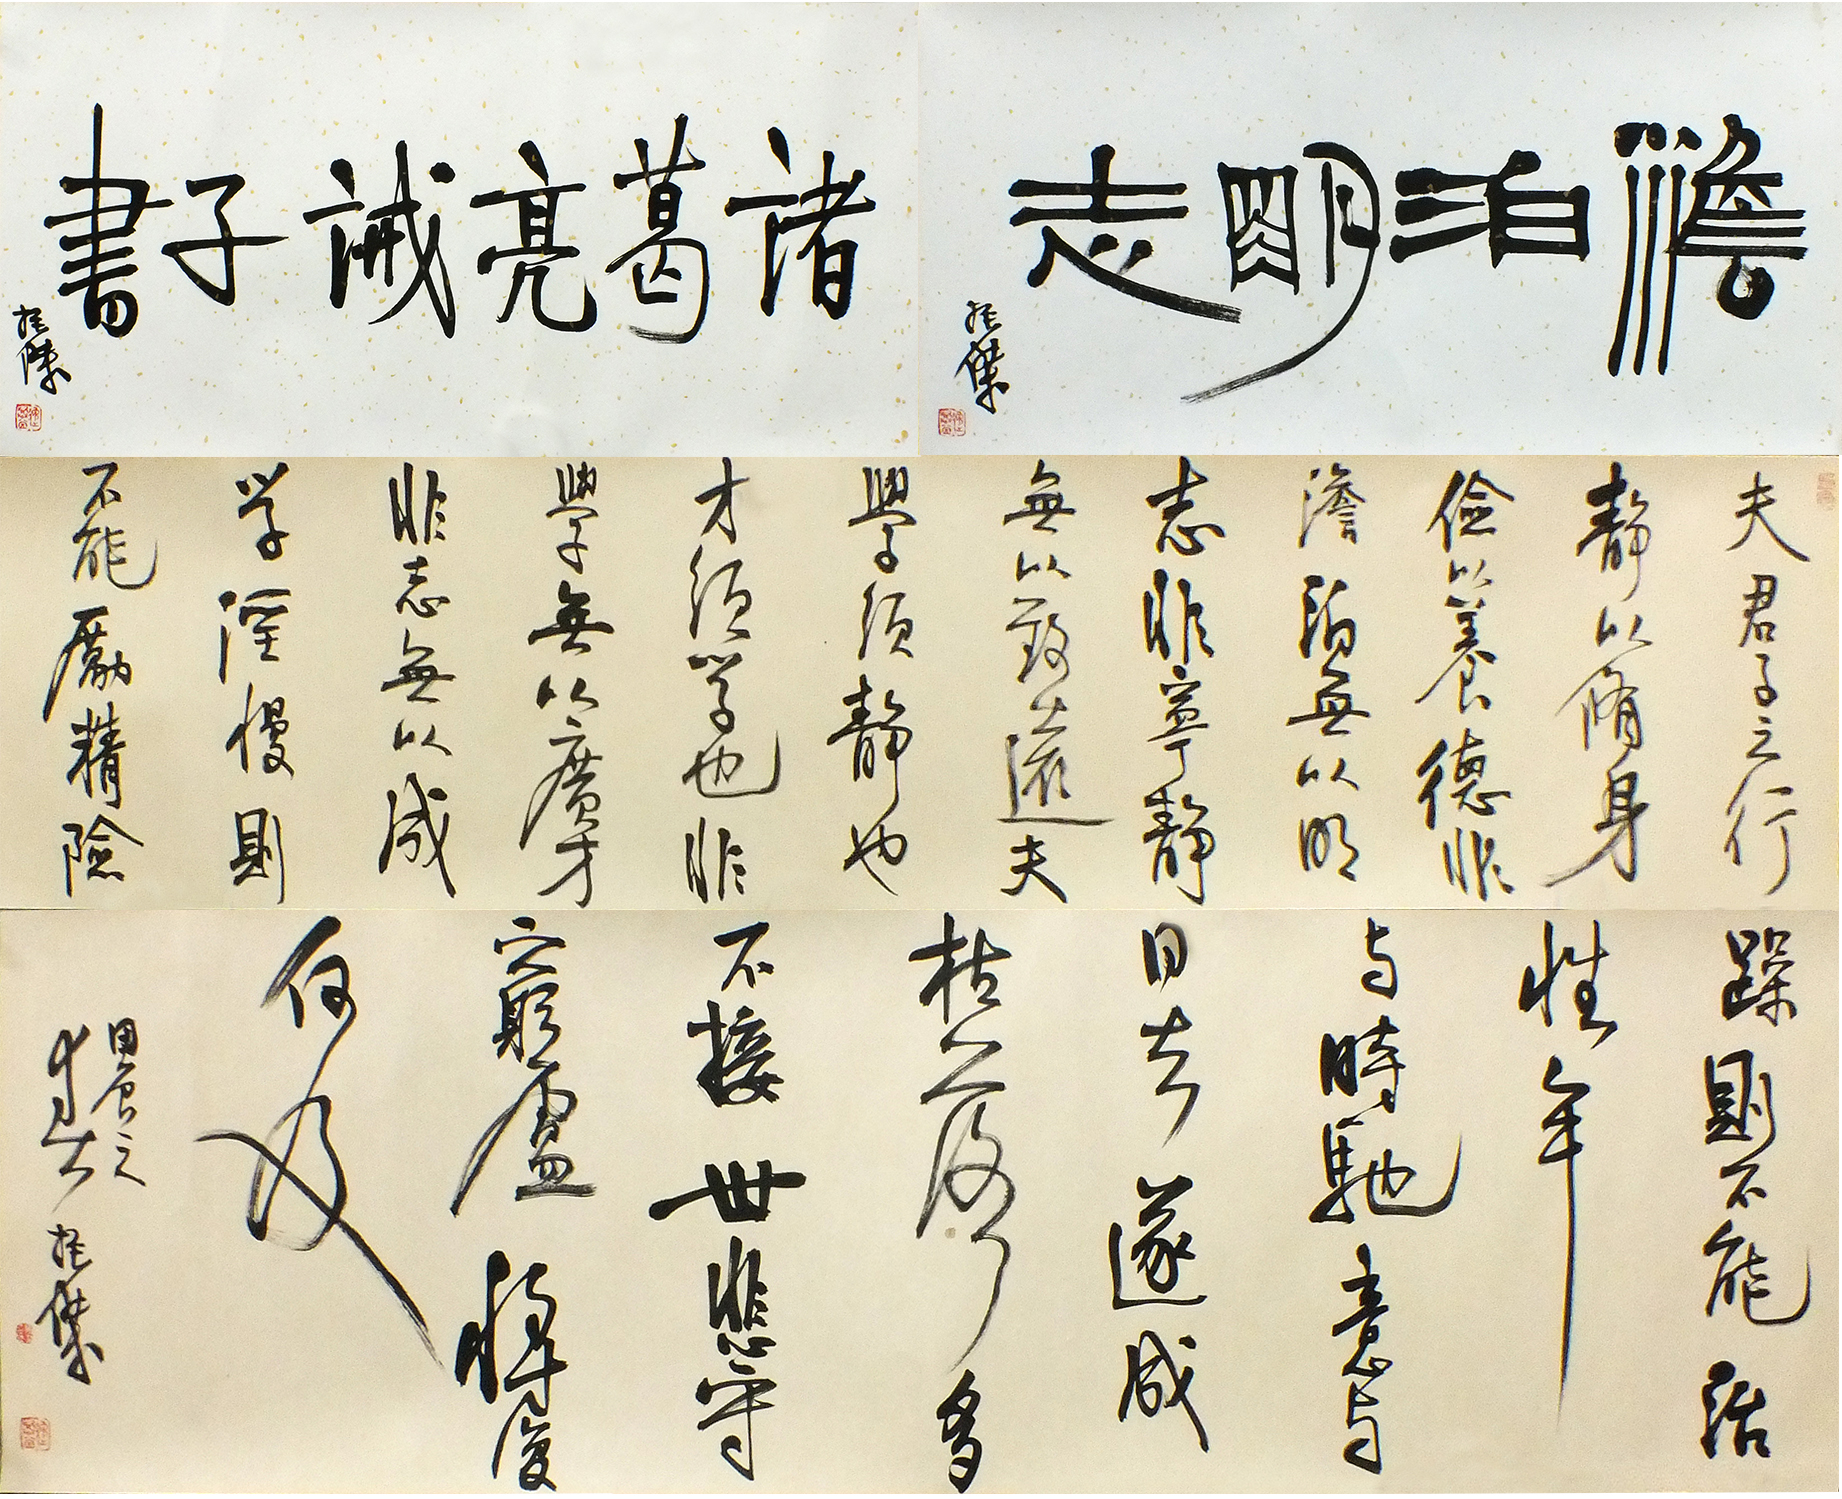 澹泊明志
傑
諸葛亮誡子書
傑
夫君子之行
静以脩身
儉以養德非
澹泊無以明
志非寧静
無以致遠夫
學須静也
才須学也非
學無以廣才
非志無以成
学淫慢則
不能勵精險
躁則不能治
性年
与時馳意与
日去遂成
枯落多
不接世悲守
窮廬將復
何及
傑